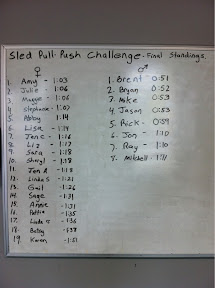 Sled Pull-Push Challenge - Final Standings
♀
1. Amy - 1:03
2. Julie - 1:06
3. Maggie - 1:06
4. Stephanie - 1:07
5. Abby 1:14
6. Lisa - 1:14
7. Jen C - 1:16
8. Liz - 1:17
9. Sara - 1:18
10. Sheryl - 1:18
11. Jen A - 1:18
12. Linda S - 1:21
13. Gail - 1:26
14. Sage - 1:31
15. Annie - 1:31
16. Pattie - 1:35
17. Linda - 1:36
18. Betsy - 1:38
19. Karen - 1:51
♂
1. Brent - 0:51
2. Bryan 0:52
3. Mike 0:53
4. Jason 0:53
5. Rick - 0:59
6. Jon - 1:10
7. Ray - 1:10
8. Mitchell - 1:11